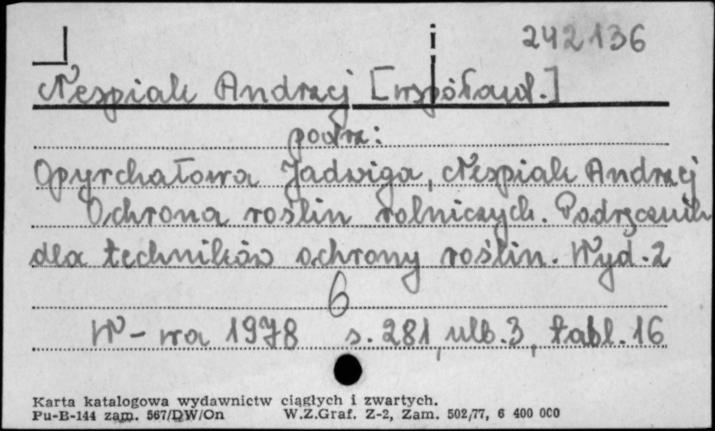 i 242136
Nespiak Andrzej [współaut.]
podrz:
Opyrchałowa Jadwiga, Nespiak Andrzej
Ochrona roślin rolniczych. Podręcznik
dla techników ochrony roślin. Wyd. 2
6
W-wa 1978 s. 281, nlb. 3, tabl. 16
Karta katalogowa wydawnictw ciągłych i zwartych.
Pu-B-144 zam. 567/DW/On W.Z.Graf. Z-2, Zam. 502/77, 6 400 000